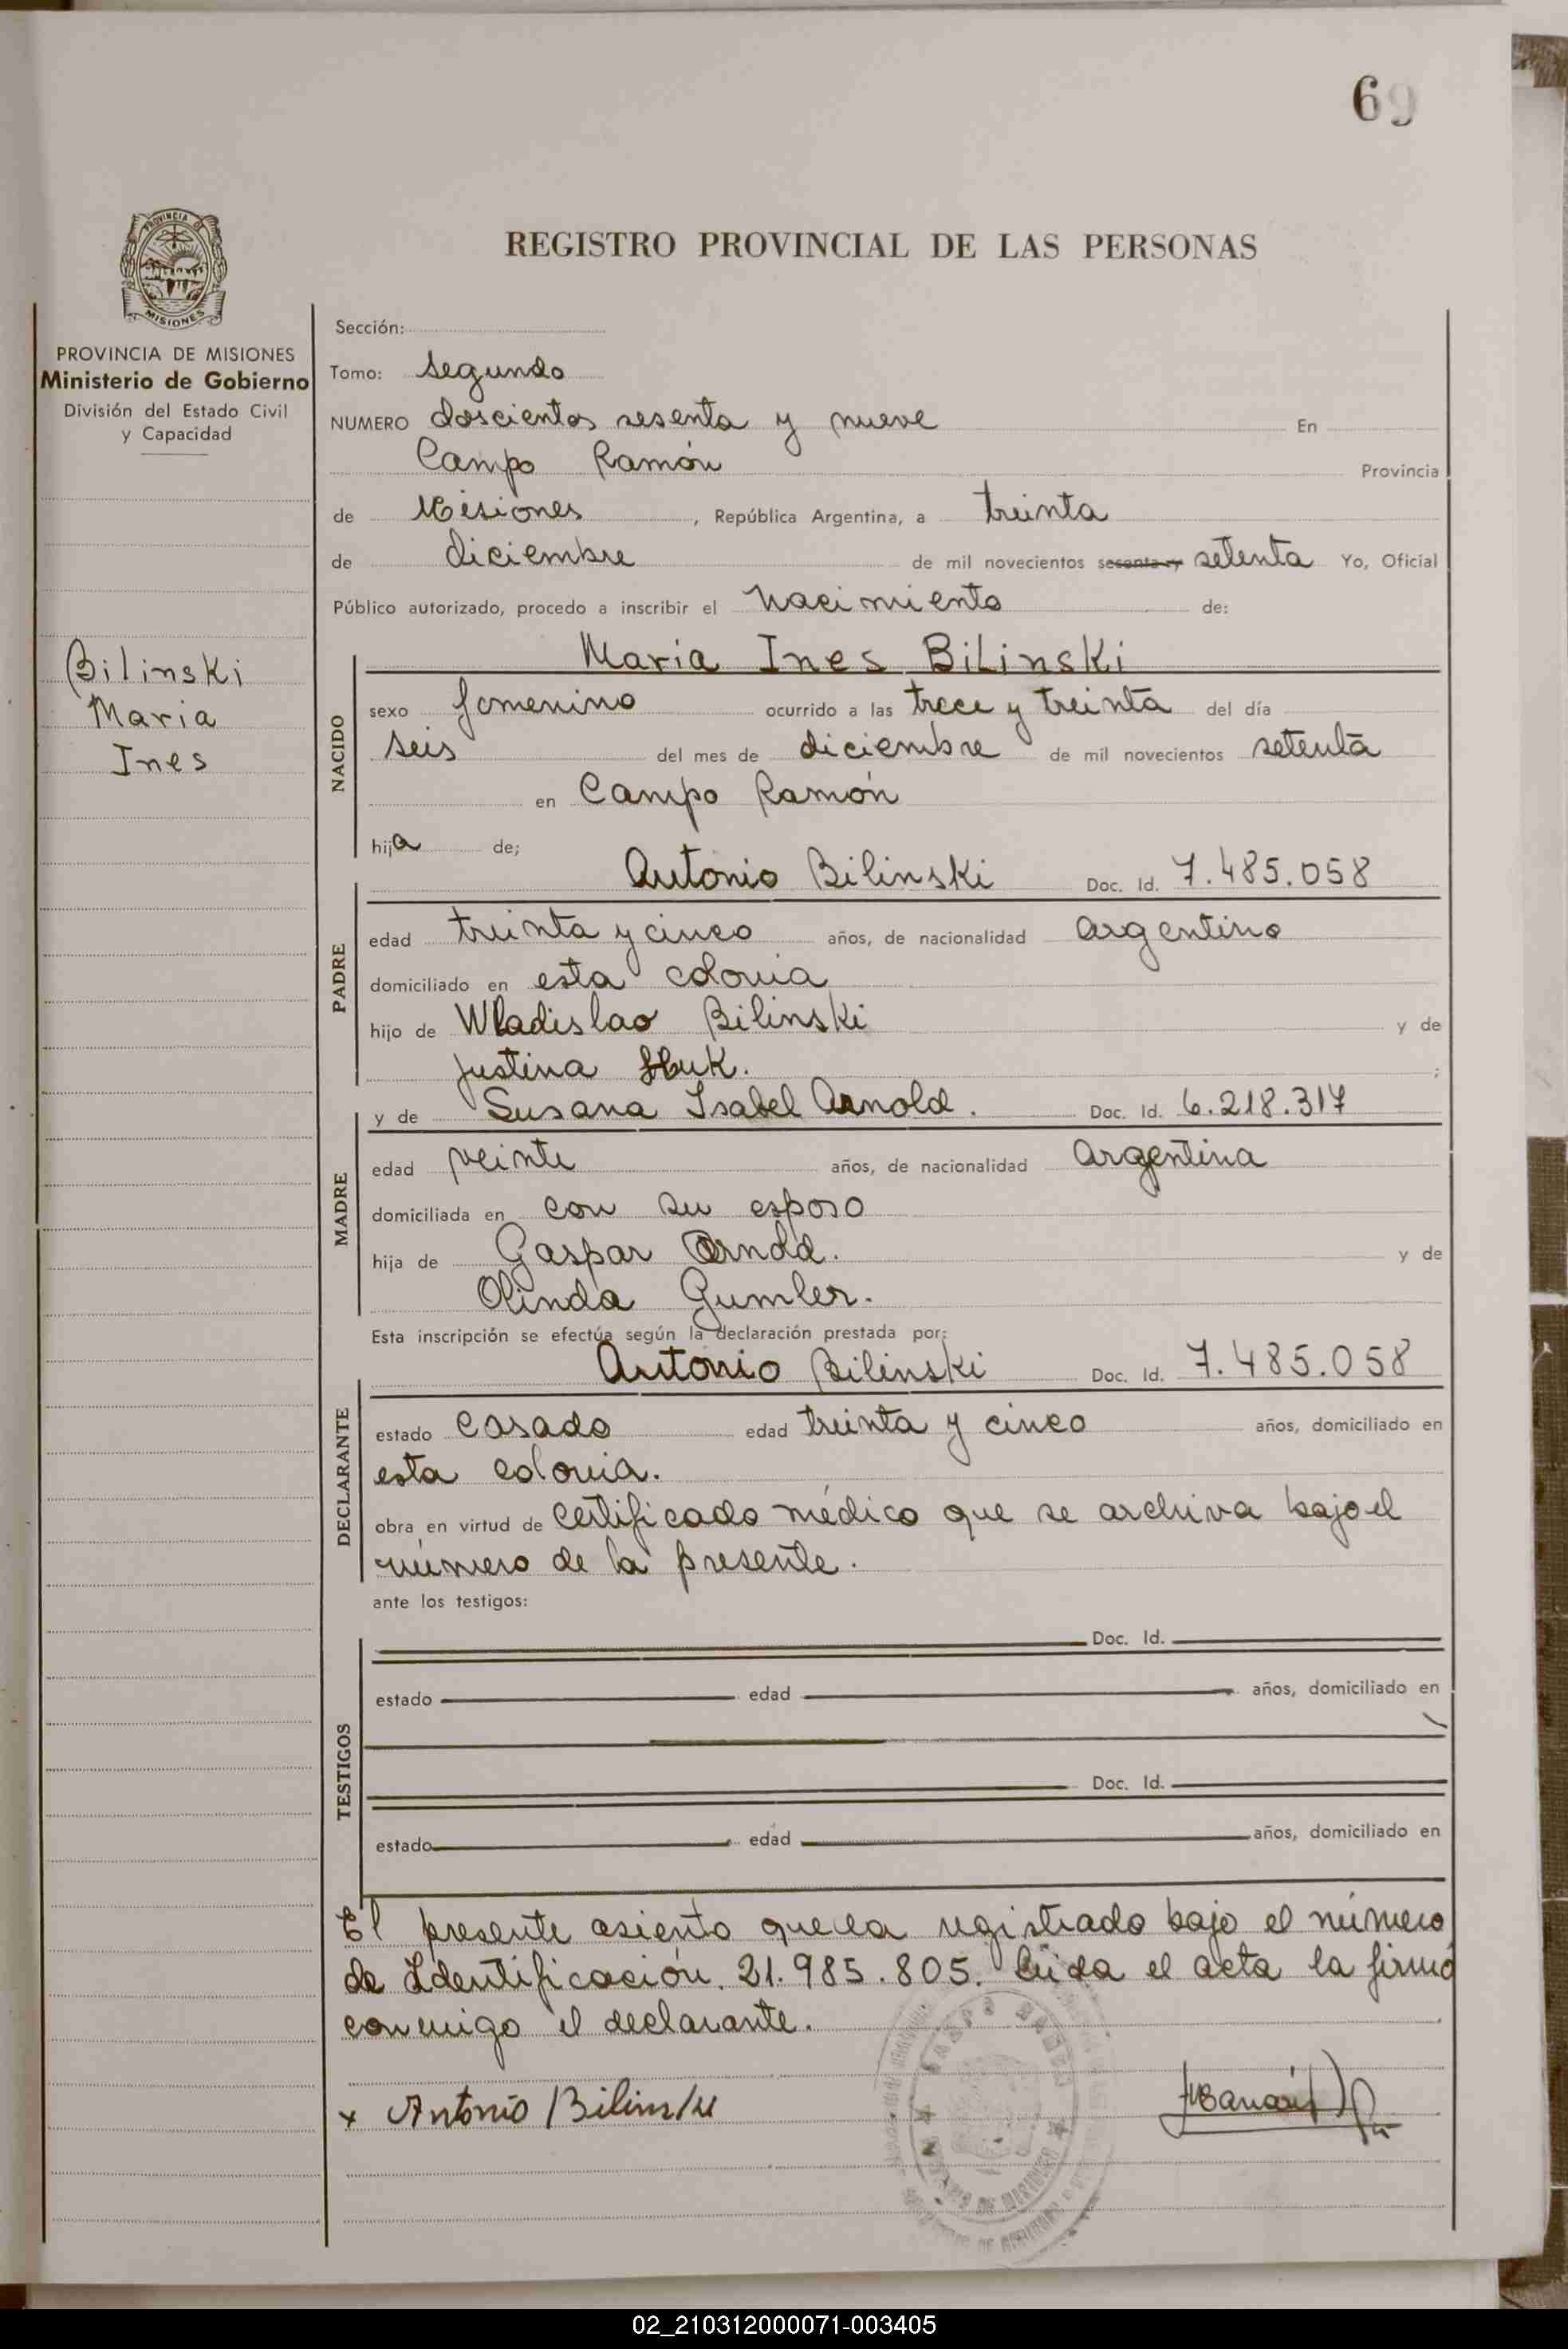 69
PROVINCIA
MISIONES
REGISTRO PROVINCIAL DE LAS PERSONAS
PROVINCIA DE MISIONES
Ministerio de Gobierno
División del Estado Civil
y Capacidad
Bilinski
Maria
Ines
Sección:
Tomo: segundo
NUMERO doscientos sesenta y nueve En
Campo Ramón Provincia
de Misiones , República Argentina, a treinta
de diciembre de mil novecientos sesenta y setenta Yo, Oficial
Público autorizado, procedo a inscribir el Nacimiento de:
NACIDO
Maria Ines Bilinski
sexo femenino ocurrido a las trece y treinta del día
seis del mes de diciembre de mil novecientos setenta
en Campo Ramón
hija de;
PADRE
Antonio Bilinski Doc. Id. 7.485.058
edad treinta y cinco años, de nacionalidad argentino
domiciliado en esta colonia
hijo de Wladislao Bilinski y de
Justina Huk. ;
MADRE
y de Susana Isabel Arnold. Doc. Id. 6.218.317
edad veinte años, de nacionalidad argentina
domiciliada en con su esposo
hija de Gaspar Arnold. y de
Olinda Gumler.
Esta inscripción se efectúa según la declaración prestada por:
DECLARANTE
Antonio Bilinski Doc. Id. 7.485.058
estado casado edad treinta y cinco años, domiciliado en
esta colonia.
obra en virtud de certificado médico que se archiva bajo el
número de la presente.
ante los testigos:
TESTIGOS
Doc. Id.
estado edad años, domiciliado en
Doc. Id.
estado edad años, domiciliado en
El presente asiento queda registrado bajo el número
de Identificación. 21.985.805. Leida el acta la firma
conmigo el declarante.
x Antonio Bilinski
02_210312000071-003405